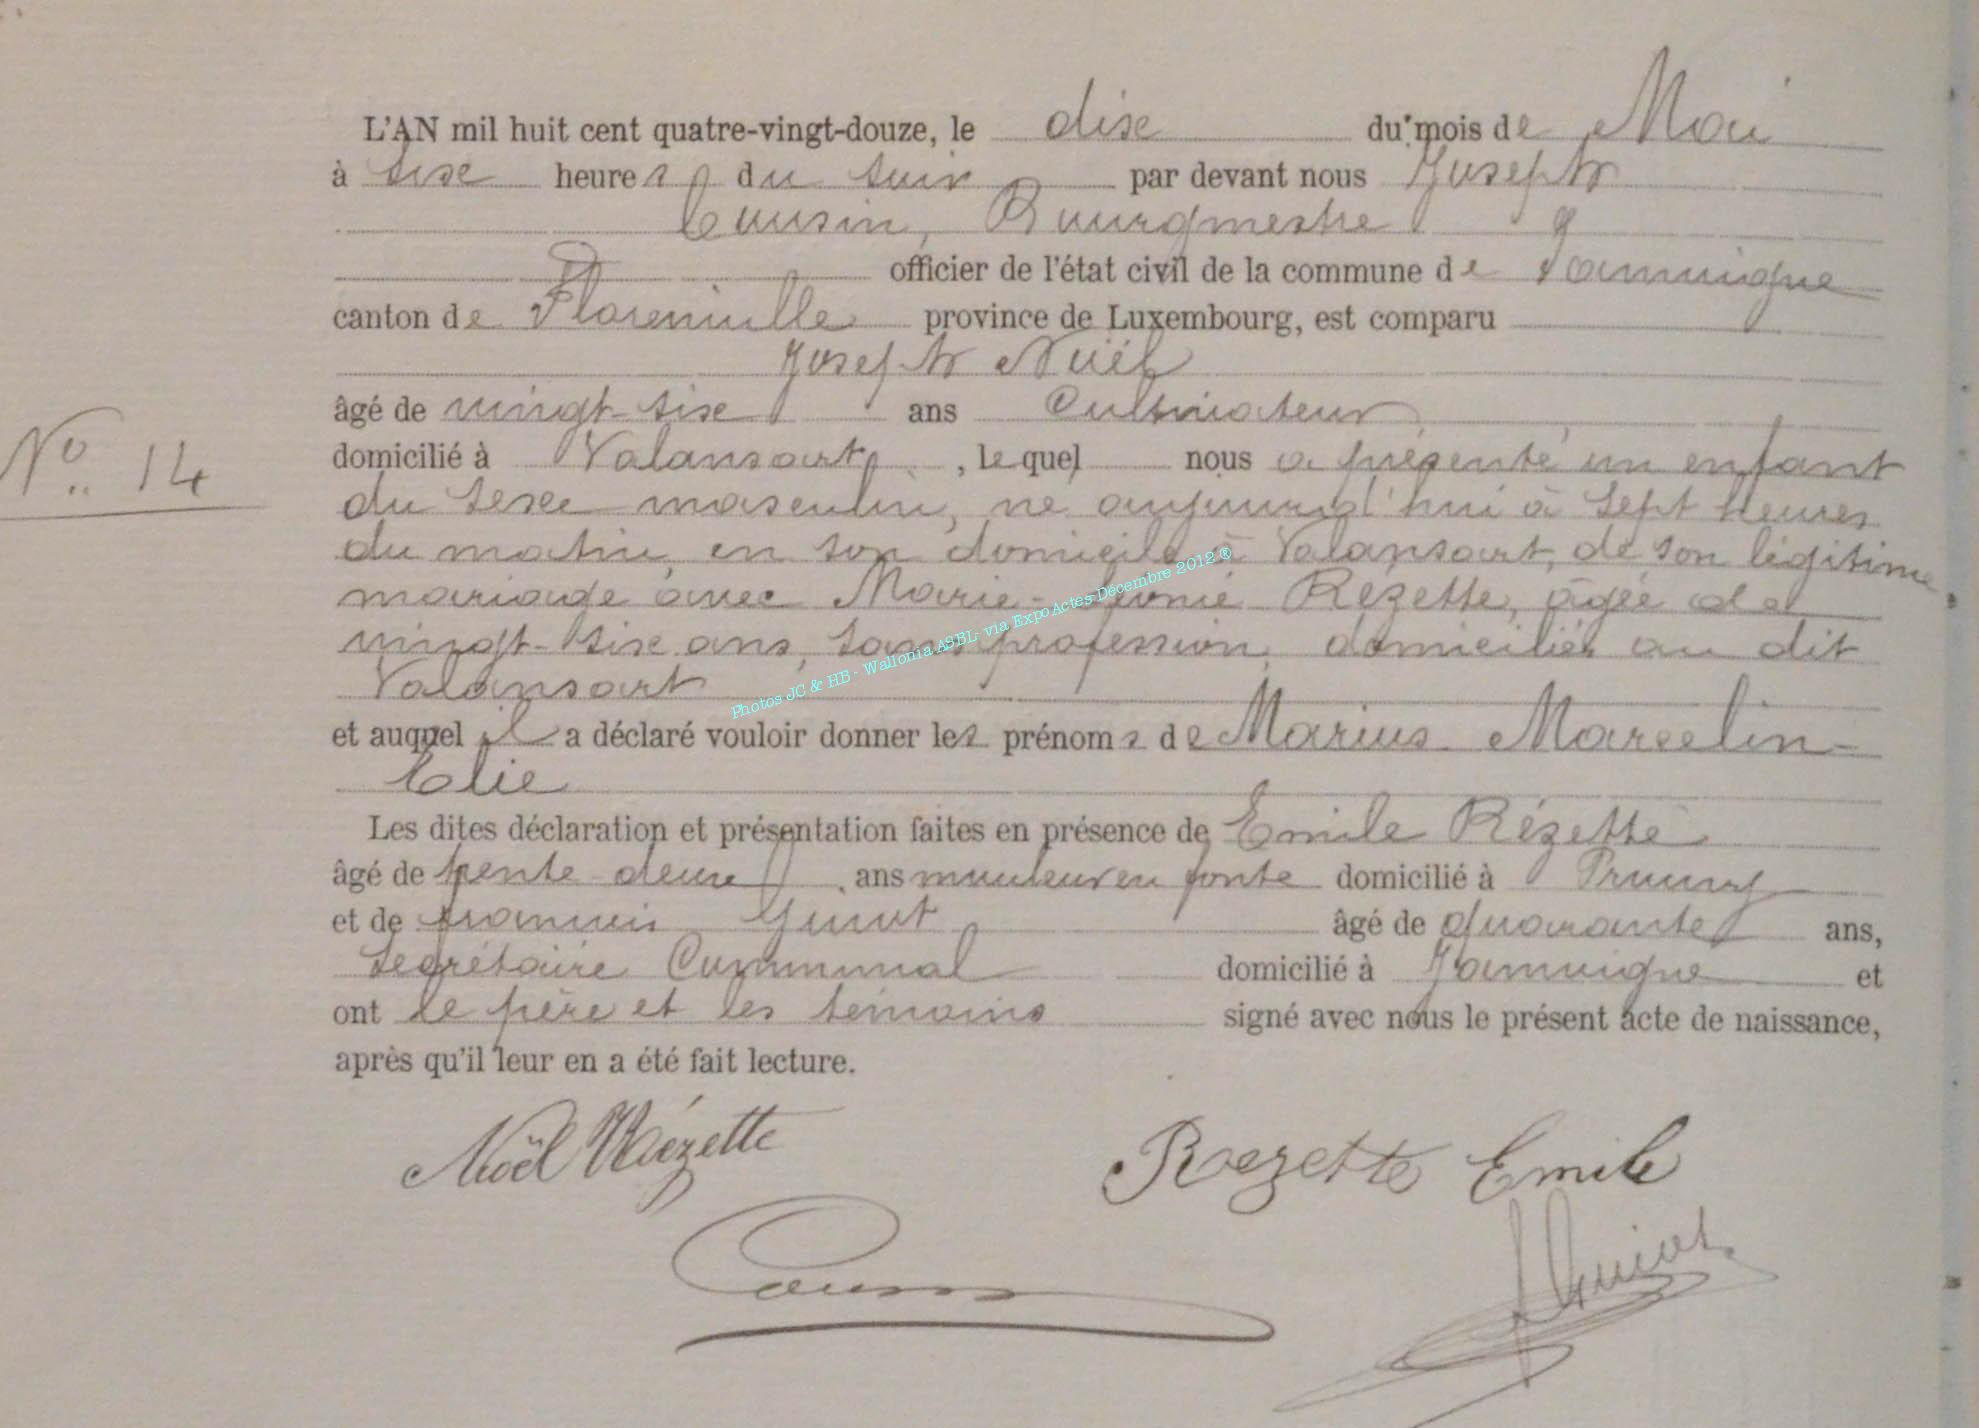 L'AN mil huit cent quatre-vingt-douze, le dix du mois de Mai
à six heures du soir par devant nous Joseph
Cousin, Bourgmestre
officier de l'état civil de la commune de Jamoigne
canton de Florenville province de Luxembourg, est comparu
Joseph Noël
âgé de vingt-six ans Cultivateur
domicilié à Valansart, lequel nous a présenté un enfant
No 14
du sexe masculin, né aujourd'hui à sept heures
du matin, en son domicile à Valansart, de son légitime
mariage avec Marie- Rézette, âgée de
vingt-six ans, sans profession, domiciliée au dit
Valansart
et auquel il a déclaré vouloir donner les prénoms de Marius Marcelin-
Elie
Les dites déclaration et présentation faites en présence de Emile Rézette
âgé de trente-deux ans mouleur en fonte domicilié à Prouvy
et de François Guiot âgé de quarante ans,
Secrétaire Communal domicilié à Jamoigne et
ont le père et les témoins signé avec nous le présent acte de naissance,
après qu'il leur en a été fait lecture.
Noël Rézette
Roezette Emile
Cousin
Guiot
Photos JC & HB - Wallonia ASBL- via ExpoActes-Décembre 2012 ®